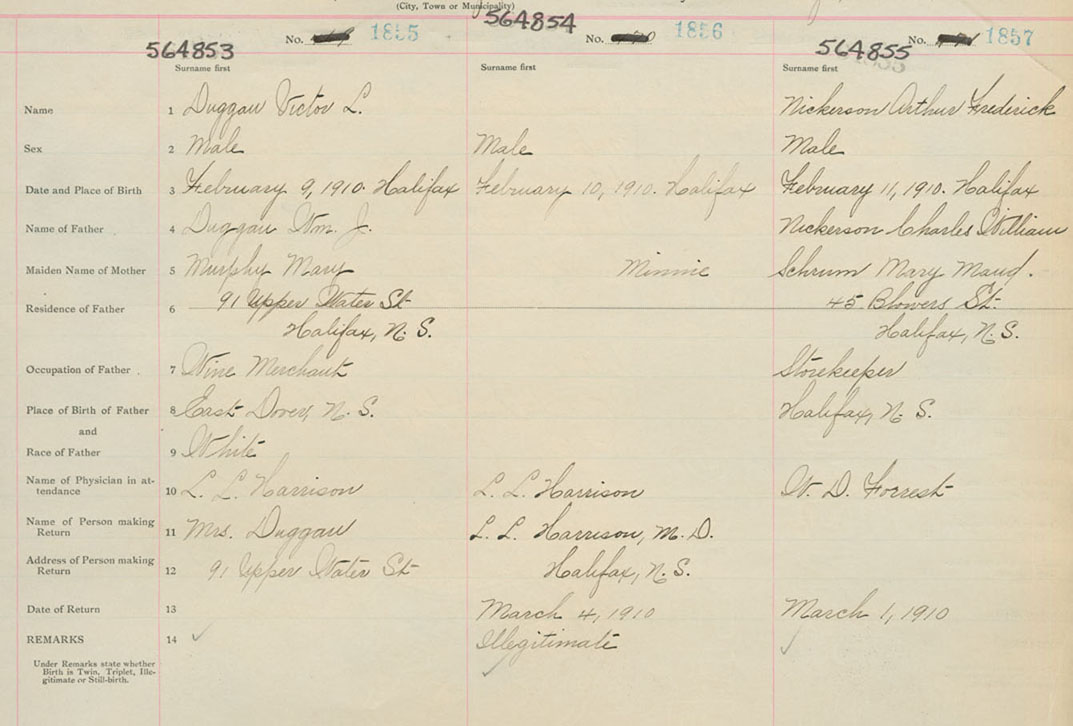 (City, Town or Municipality)
564853 No. 1855 564854 No. 1856 564855 No. 1857
Surname first Surname first Surname first
Name 1 Duggan Victor L. Nickerson Arthur Frederick
Sex 2 Male Male Male
Date and Place of Birth 3 February 9, 1910. Halifax February 10, 1910. Halifax February 11, 1910. Halifax
Name of Father 4 Duggan Wm. J. Nickerson Charles William
Maiden Name of Mother 5 Murphy Mary Minnie Schrum Mary Maud.
Residence of Father 6 91 Upper Water St 45 Blowers St.
Halifax, N. S. Halifax, N. S.
Occupation of Father 7 Wine Merchant Storekeeper
Place of Birth of Father 8 East Dover, N. S. Halifax, N. S.
and
Race of Father 9 White
Name of Physician in at-
tendance 10 L. L. Harrison L. L. Harrison W. D. Forrest
Name of Person making
Return 11 Mrs. Duggan L. L. Harrison, M. D.
Address of Person making
Return 12 91 Upper Water St Halifax, N. S.
Date of Return 13 March 4, 1910 March 1, 1910
REMARKS 14 Illegitimate
Under Remarks state whether
Birth is Twin, Triplet, Ille-
gitimate or Still-birth.